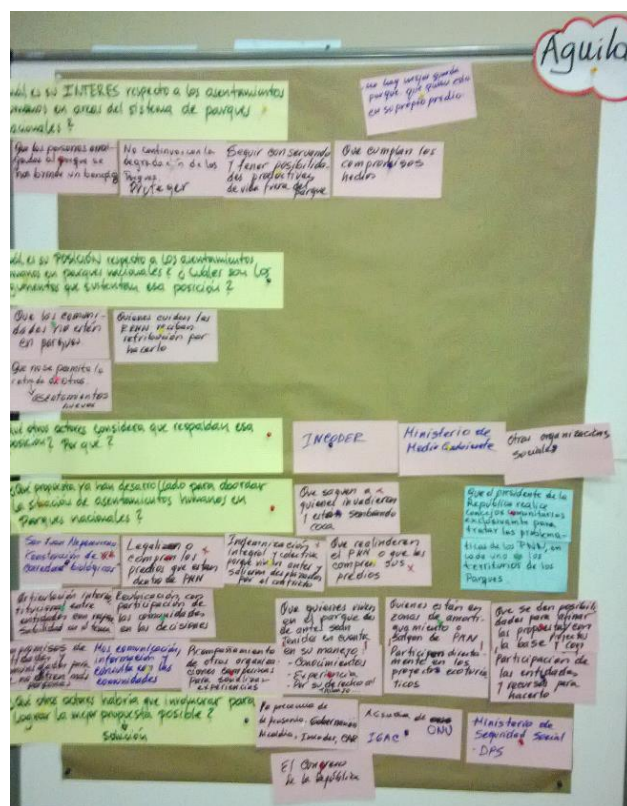 Aguila
INTERES respecto a los asentamientos
humanos en areas del sistema de parques
nacionales?
no hay mejor guarda
parque que quien esta
en su propio predio
Que las personas
No continuar con la
degradación de los
Parques.
Proteger
Seguir conservando
y tener posibilida-
des productivas
de vida fuera del
parque
Que cumplan los
compromisos
hechos
es su POSICIÓN respecto a los asentamientos
humanos en parques nacionales? ¿ Cuáles son los
argumentos que sustentan esa posición?
Que las comuni-
dades no estén
en parques
Quienes cuidan los
PNN reciban
retribución por
hacerlo
Que no se permita la
asentamientos
nuevos
otros actores considera que respaldan esa
posición? Por qué?
INCODER
Ministerio de
Medio Ambiente
Otras organizaciones
sociales
Qué propuesta ya han desarrollado para abordar
la situación de asentamientos humanos en
Parques nacionales?
Que saquen a
quienes invadieron
y están sembrando
coca
Que el presidente de la
República realice
consejos comunitarios
exclusivamente para
tratar los problema-
ticas de los PNN, en
cada uno de los
territorios de los
Parques.
San Juan Nepomuceno
Construcción de
corredores biológicos
Legalicen o
compren los
predios que estan
dentro de PNN
Indemnización
integral y colectiva
porque vivian antes y
salieron desplazados
por el conflicto
Que realinderen
el PNN o que les
compren sus
predios
Articulación interins
titucional entre
entidades con respon
sabilidad en el tema
con
participación de
las comunidades
en las decisiones
Que quienes viven
en el parque des
de antes sean
Tenido en cuenta
en su manejo
- Conocimientos
- Experiencia
- Por su derecho al
Quienes están en
zonas de amorti-
guamiento o
salgan de PNN
Participen directa
mente en los
proyectos ecoturis
ticos
Que se den posibili
dades para afinar
las propuestas con
la base y con
Participación de
las entidades
y recursos para
hacerlo
Mas comunicación,
información y
consulta a las
comunidades
Acompañamiento
de otras organiza-
ciones campesinas
para socializar
experiencias
otros actores habría que involucrar para
lograr la mejor propuesta posible?
solución
La presencia de
Gobernación
Alcaldia, Incoder, CAR
ONU
IGAC
Ministerio de
Seguridad Social
- DPS
El Congreso
de la República